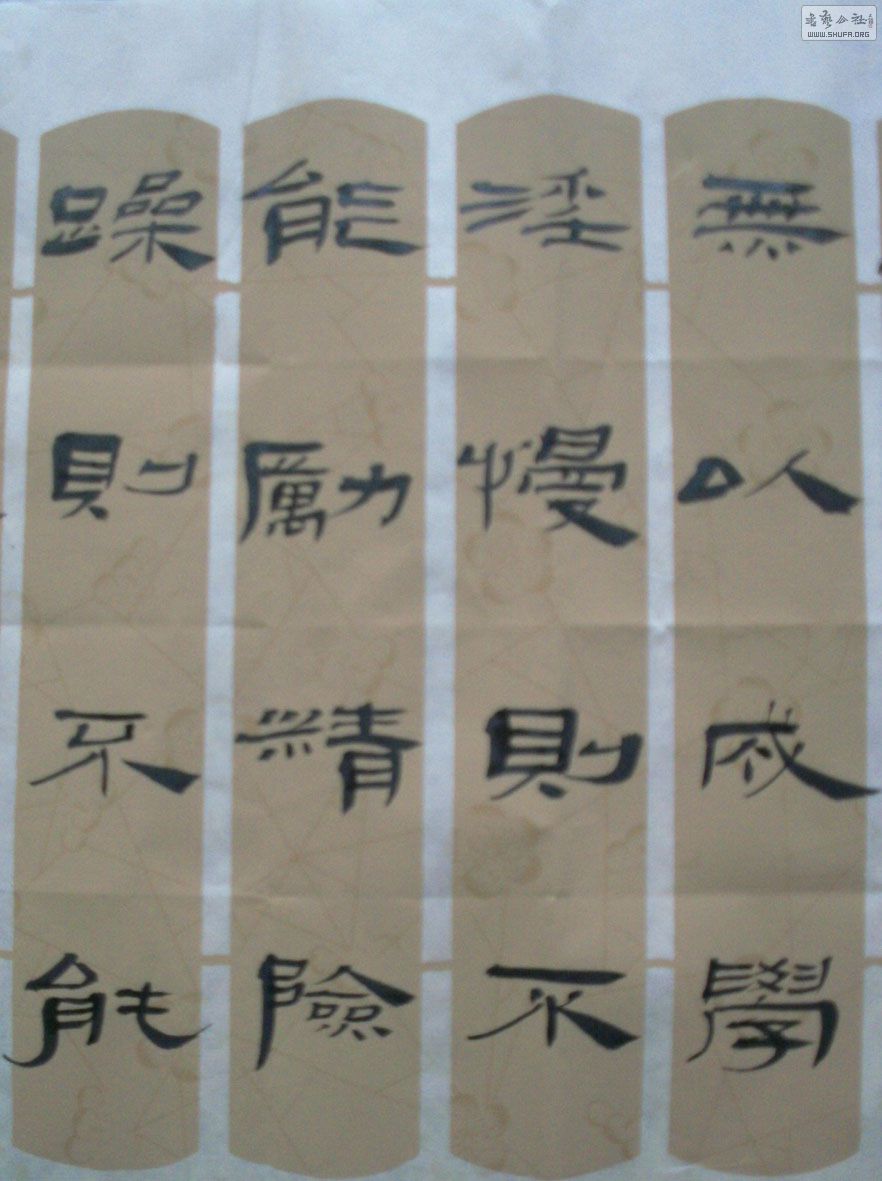 無以成學
淫慢則不
能勵精險
躁則不能
書藝公社
WWW.SHUFA.ORG